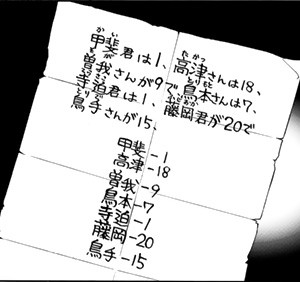 甲斐君は1、高津さんは18、
曽我さんが9で鳥本さんは7、
寺迫君は1、藤岡君が20で
鳥手さんが15、
甲斐-1
高津-18
曽我-9
鳥本-7
寺迫-1
藤岡-20
鳥手-15